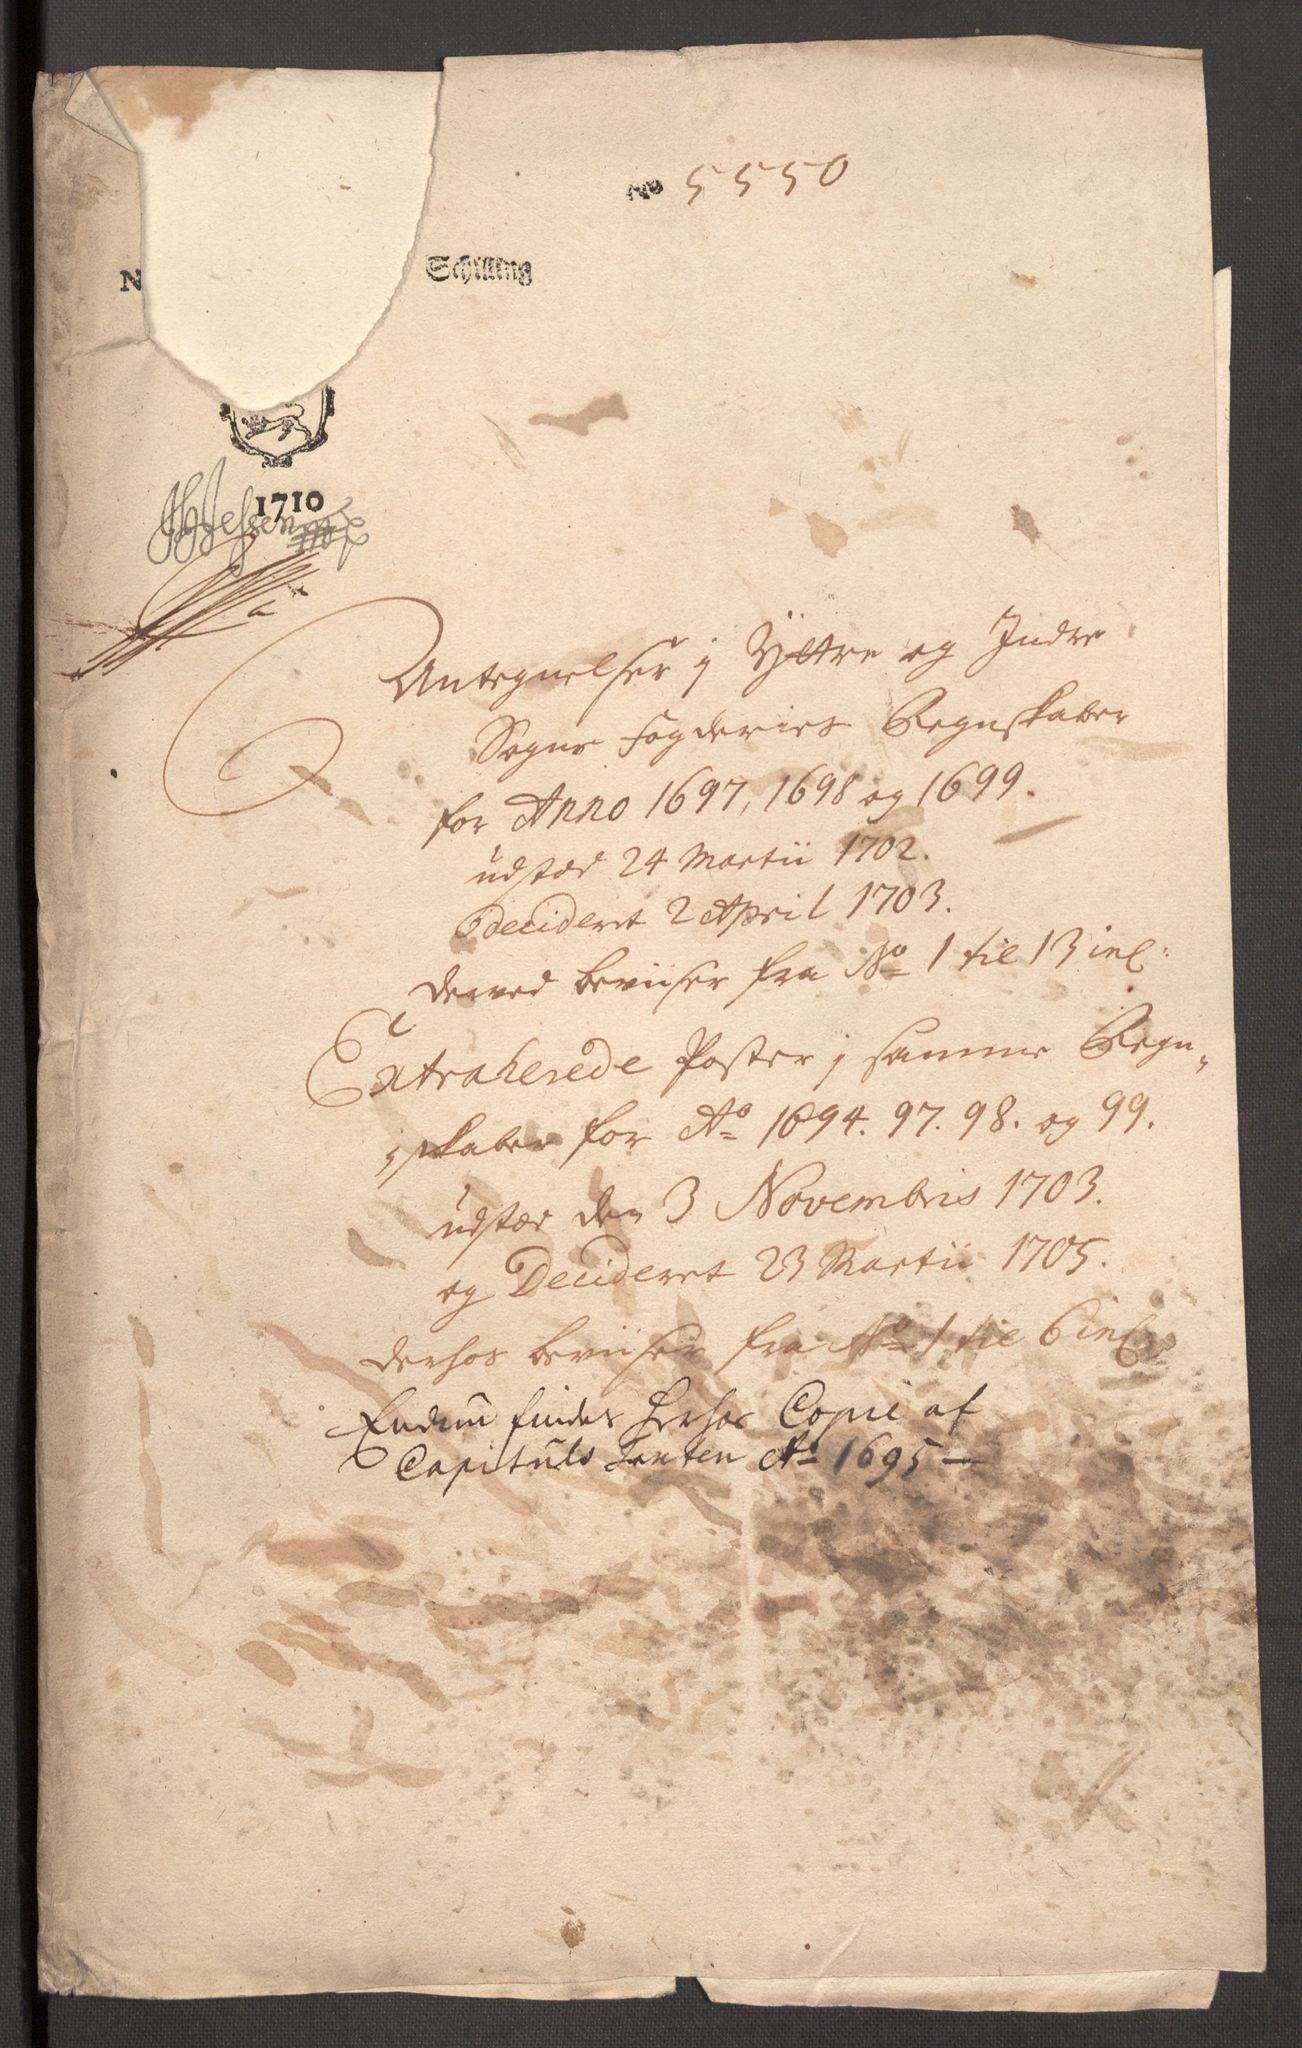 No 5550
N
Schilling
1710
Antegnelser j Ÿttre og Indre
Sogns Fogderies Regnskaber
for Anno 1697, 1698 og 1699.
udstæd 24 Martii 1702.
Decideret 2 April 1703.
derved beviiser fra No 1 til 13 incl:
Extraherede Poster j samme Regn-
skaber for Ao 1694. 97. 98. og 99.
udstæd den 3 Novembris 1703.
og Decideret 23 Martii 1705.
derhos beviiser fra No 1 til 6 incl
Endnu findes herhos Copie af
Capituls taxten Ao 1695 —